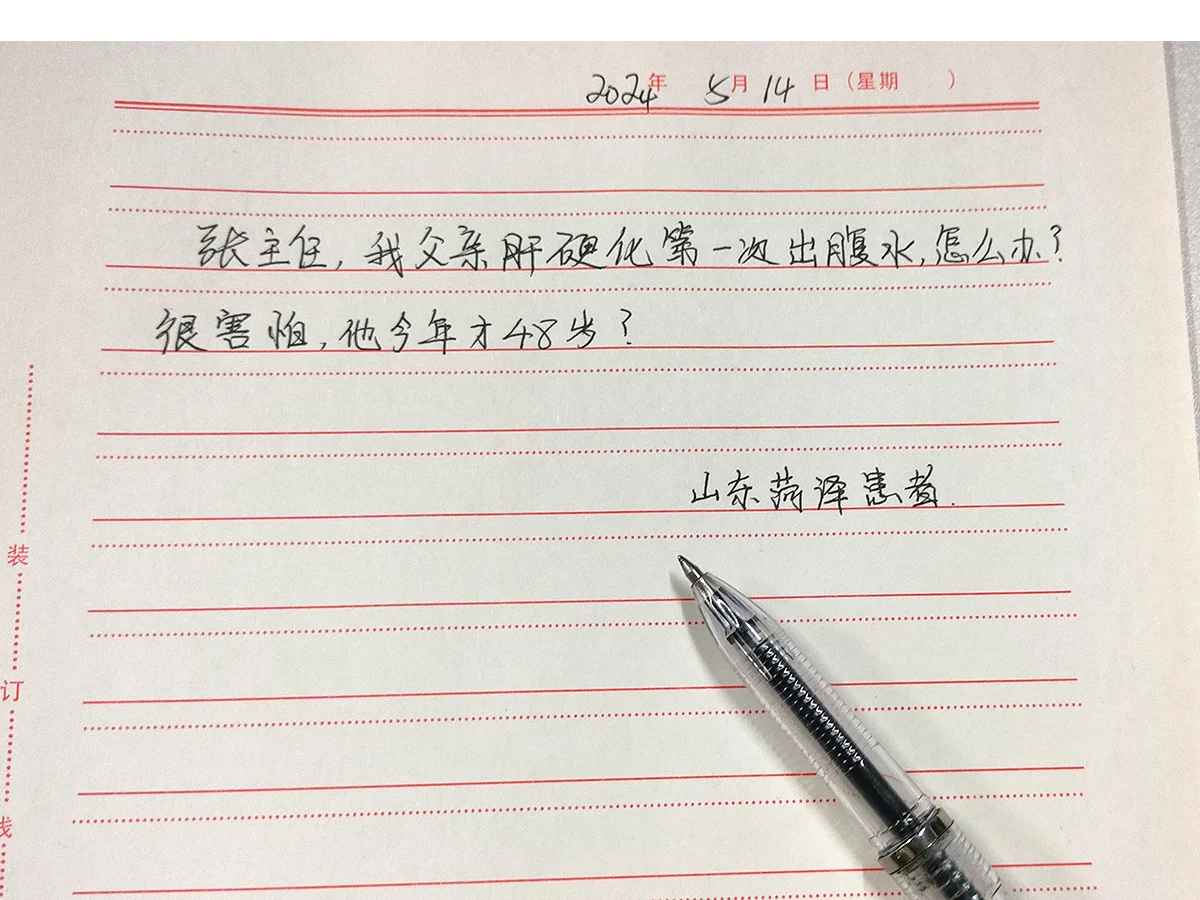 2024年 5月14日（星期 ）
张主任，我父亲肝硬化第一次出腹水，怎么办？
很害怕，他今年才48岁？
山东菏泽患者.
装
订
线